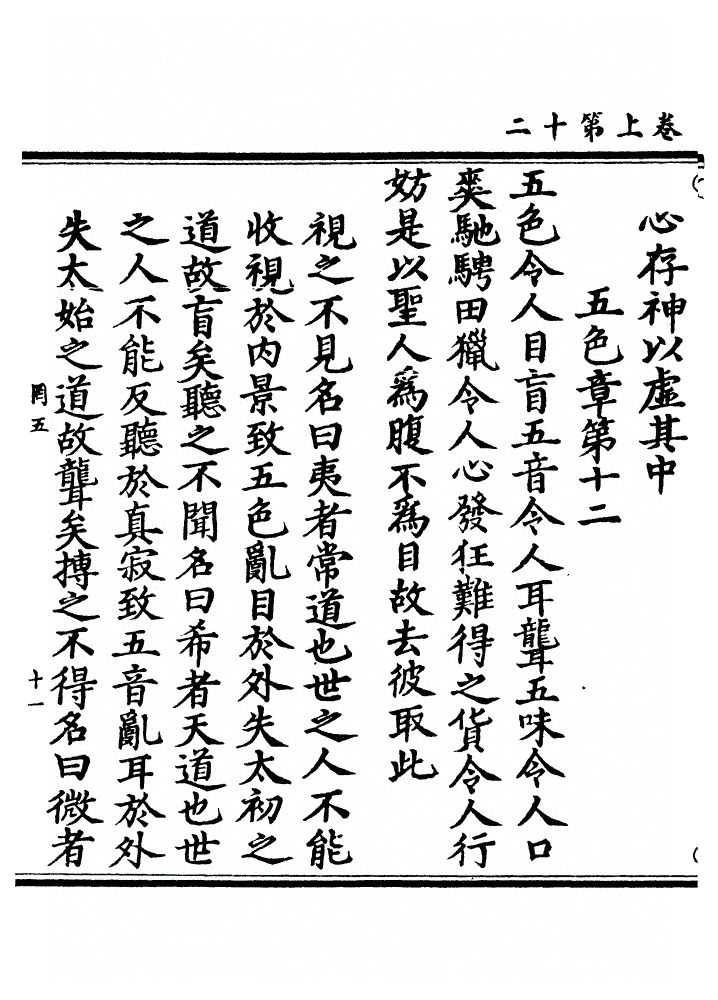 卷上第十二
心存神以虛其中
五色章第十二
五色令人目盲五音令人耳聾五味令人口
爽馳騁田獵令人心發狂難得之貨令人行
妨是以聖人爲腹不爲目故去彼取此
視之不見名曰夷者常道也世之人不能
收視於内景致五色亂目於外失太初之
道故盲矣聽之不聞名曰希者天道也世
之人不能反聽於真寂致五音亂耳於外
失太始之道故聾矣搏之不得名曰微者
罔五
十一